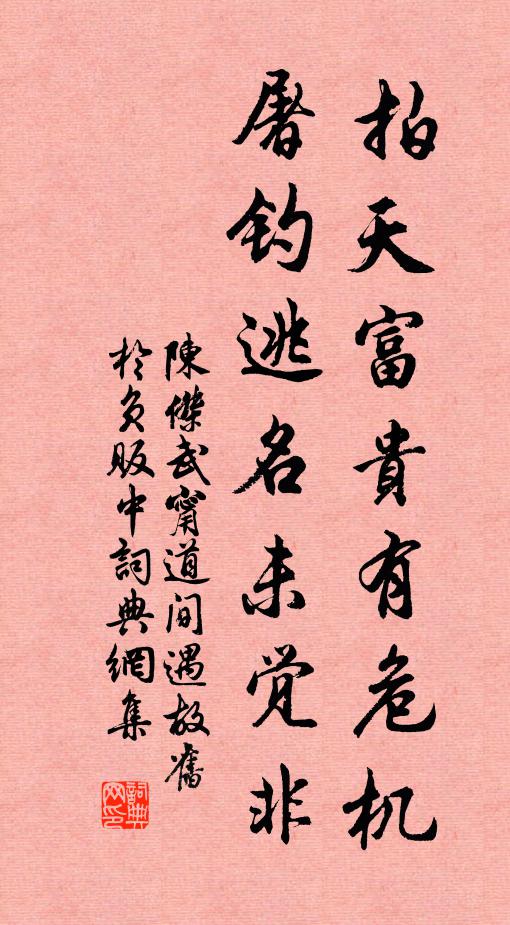 拍天富貴有危机
屠钓逃名未觉非
陳傑武甯道间遇故舊
於負販中詞典網集
詞典
网印